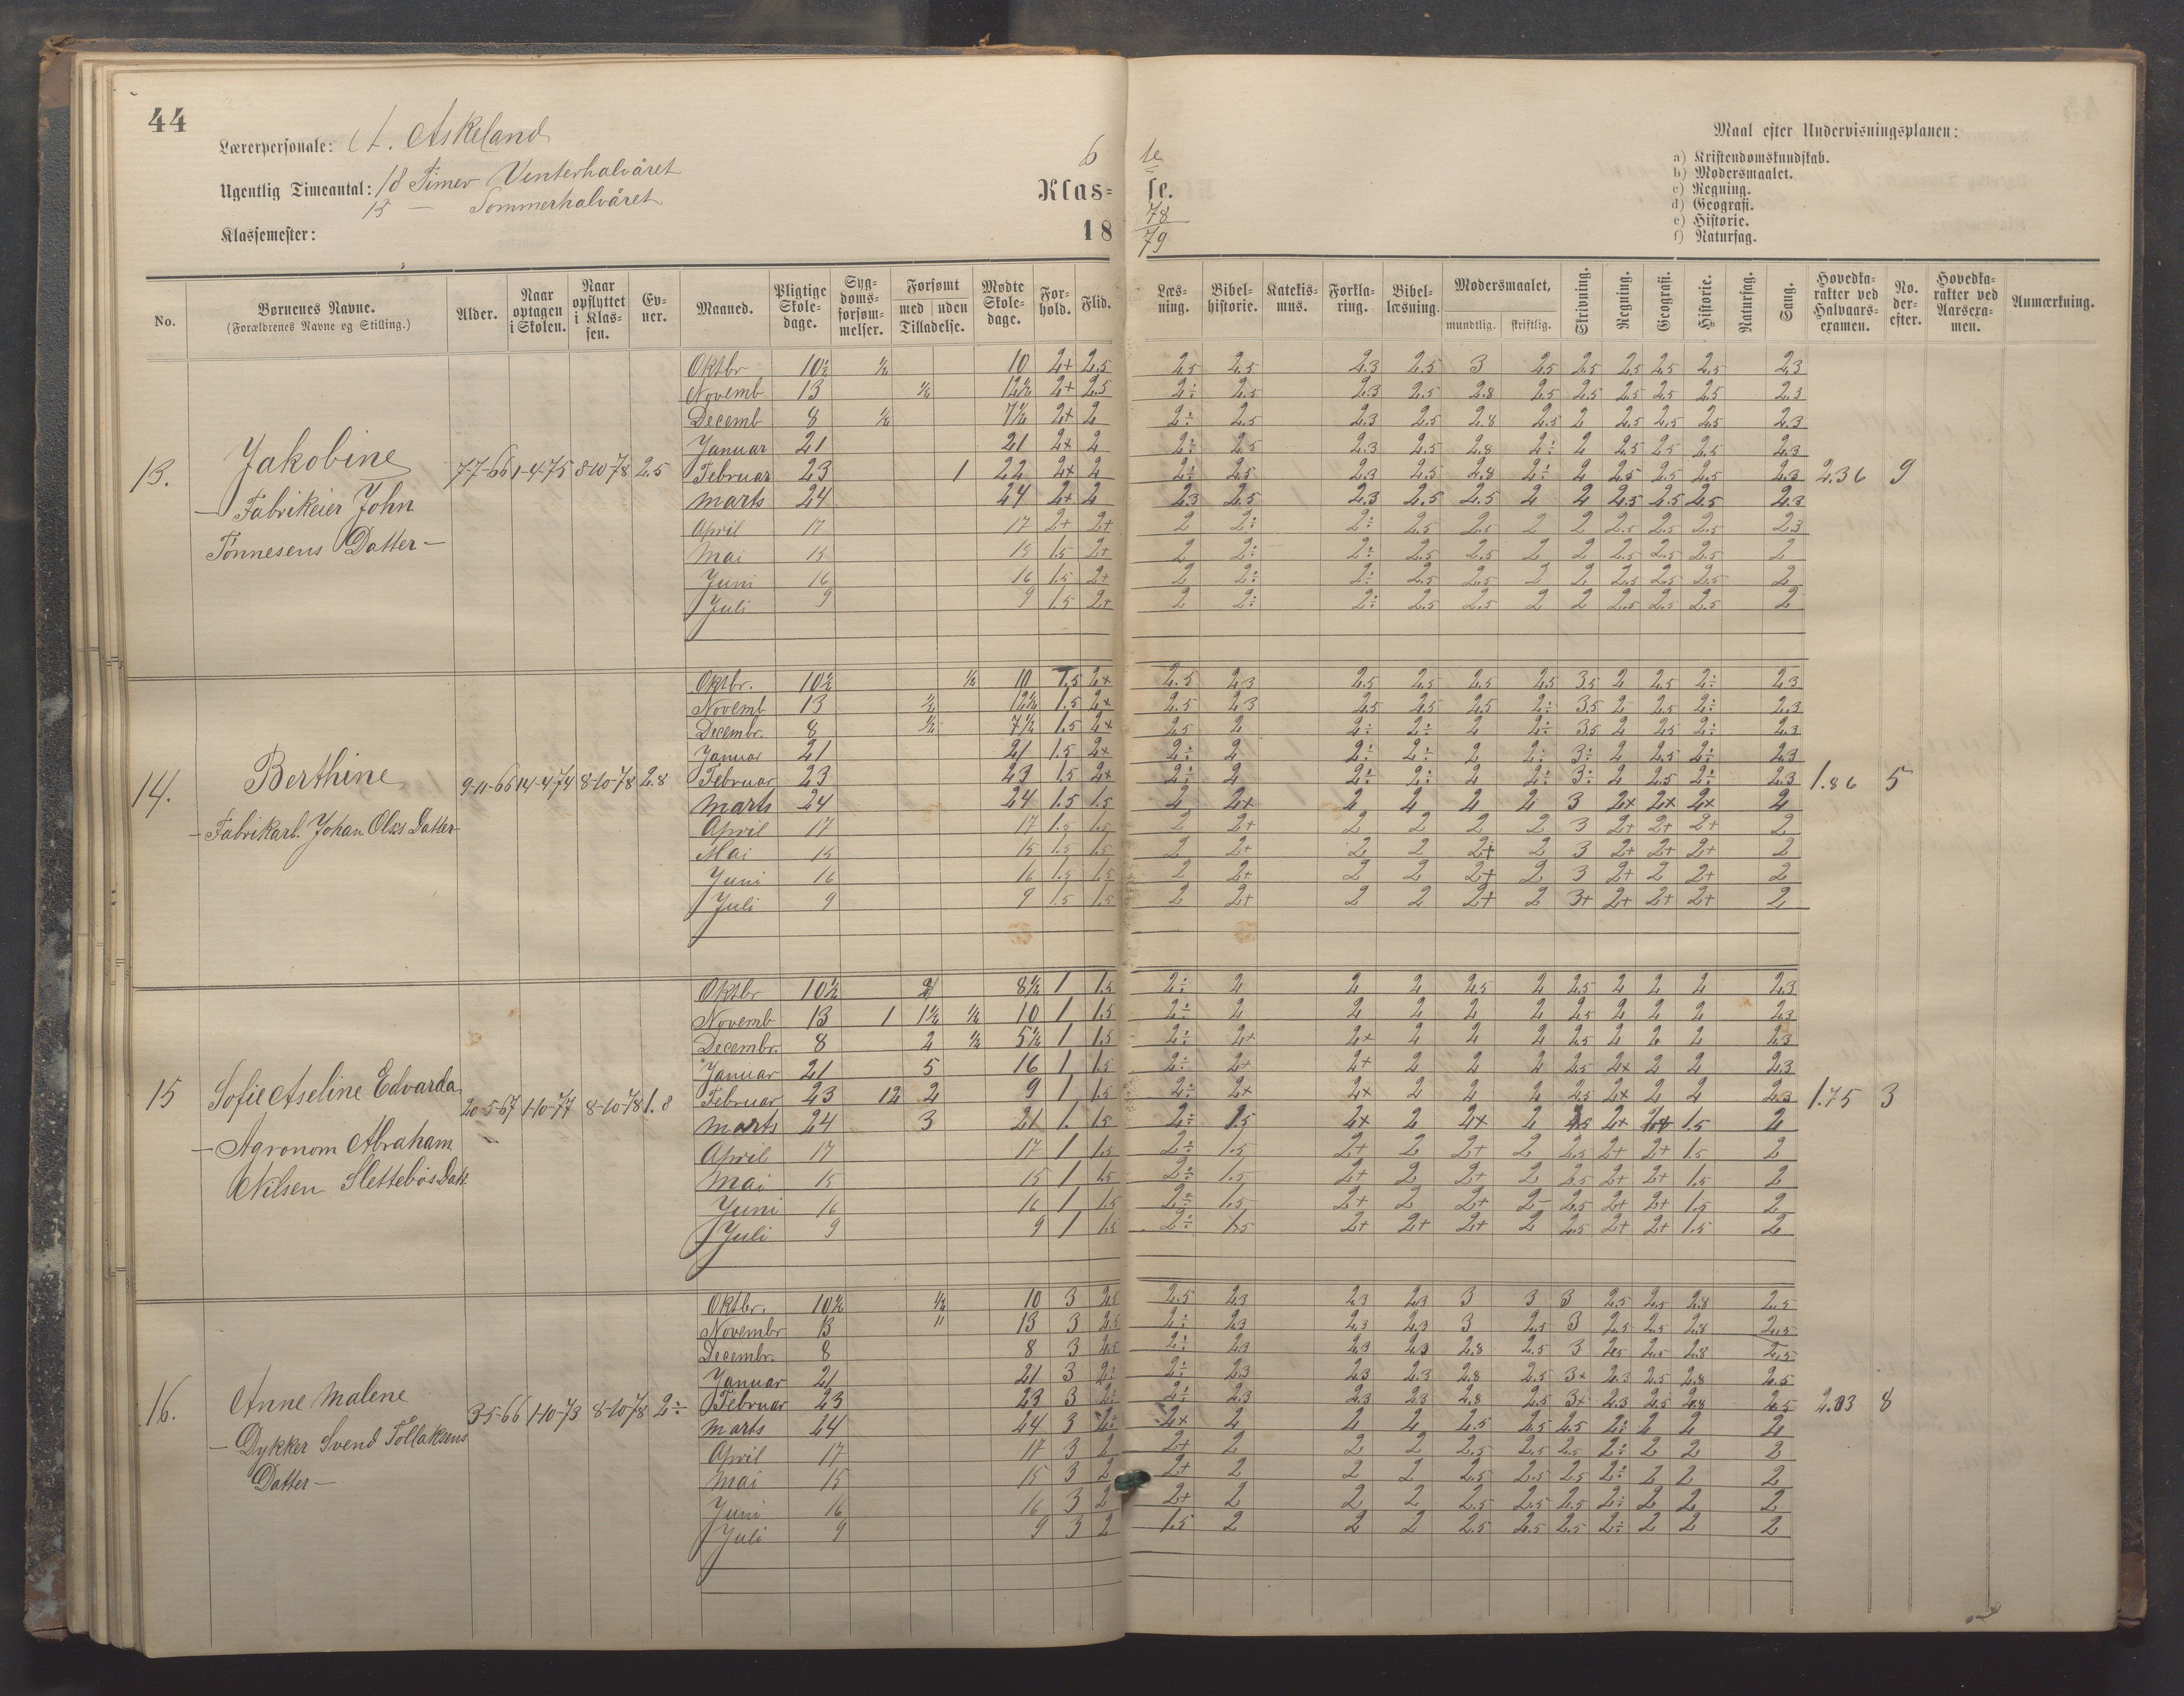 44
Lærerpersonale: A. Askeland
Ugentlig Timeantal: 18 Timer Vinterhalvåret
13 — Sommerhalvåret
Klassemester:
6te
Klas= se.
18 78/79
Maal efter Undervisningsplanen:
a) Kristendomskundskab.
b) Modersmaalet.
c) Regning.
d) Geografi.
e) Historie.
f) Naturfag.
No. | Børnenes Navne. (Forældrenes Navne og Stilling.) | Alder. | Naar optagen i Skolen. | Naar opflyttet i Klas=sen. | Ev=ner. | Maaned. | Pligtige Skole=dage. | Syg=doms=forsøm=melser. | Forsømt med uden Tilladelse. | Mødte Skole=dage. | For=hold. | Flid. | Læs=ning. | Bibel=historie. | Katekis=mus. | Forkla=ring. | Bibel=læsning. | Modersmaalet, mundtlig. skriftlig. | Skrivning. | Regning. | Geografi. | Historie. | Naturfag. | Sang. | Hovedka=rakter ved Halvaars=examen. | No. der=efter. | Hovedka=rakter ved Aarsexa=men. | Anmærkning.
13. Jakobine
— Fabrikeier John
Tønnesens Datter —
7-7-66 1-4-75 8-10-78 2.5
Oktbr 10½ ½ 10 2+ 2.5 2.5 2.5 2.3 2.5 3 2.5 2.5 2.5 2.5 2.5 2.3
Novemb 13 ½ 12½ 2+ 2.5 2÷ 2.5 2.3 2.5 2.8 2.5 2.5 2.5 2.5 2.5 2.3
Decemb 8 ½ 7½ 2+ 2 2÷ 2.5 2.3 2.5 2.8 2.5 2 2.5 2.5 2.5 2.3
Januar 21 21 2+ 2 2÷ 2.5 2.3 2.5 2.8 2÷ 2 2.5 2.5 2.5 2.3
Februar 23 1 22 2+ 2 2÷ 2.5 2.3 2.5 2.8 2÷ 2 2.5 2.5 2.5 2.3 2.36 9
Marts 24 24 2+ 2 2.3 2.5 2.3 2.5 2.5 2 2 2.5 2.5 2.5 2.3
April 17 17 2+ 2+ 2 2÷ 2÷ 2.5 2.5 2 2 2.5 2.5 2.5 2.3
Mai 15 15 1.5 2+ 2 2÷ 2÷ 2.5 2.5 2 2 2.5 2.5 2.5 2
Juni 16 16 1.5 2+ 2 2÷ 2÷ 2.5 2.5 2 2 2.5 2.5 2.5 2
Juli 9 9 1.5 2+ 2 2÷ 2÷ 2.5 2.5 2 2 2.5 2.5 2.5 2
14. Berthine
— Fabrikarb. Johan Ols's Datter
9-11-66 14-4-74 8-10-78 2.8
Oktbr. 10½ ½ 10 1.5 2+ 2.5 2.3 2.5 2.5 2.5 2.5 3.5 2 2.5 2÷ 2.3
Novemb 13 ½ 12½ 1.5 2+ 2.5 2.3 2.5 2.5 2.5 2÷ 3.5 2 2.5 2÷ 2.3
Decembr. 8 ½ 7½ 1.5 2+ 2.5 2 2÷ 2÷ 2 2÷ 3.5 2 2.5 2÷ 2.3
Januar 21 21 1.5 2+ 2÷ 2 2÷ 2÷ 2 2÷ 3÷ 2 2.5 2÷ 2.3
Februar 23 23 1.5 2+ 2÷ 2 2÷ 2÷ 2 2÷ 3÷ 2 2.5 2÷ 2.3 1.86 5
Marts 24 24 1.5 1.5 2 2+ 2 2 2 2 3 2+ 2+ 2+ 2
April 17 17 1.5 1.5 2 2+ 2 2 2 2 3 2+ 2+ 2+ 2
Mai 15 15 1.5 1.5 2 2+ 2 2 2+ 2 3 2+ 2+ 2+ 2
Juni 16 16 1.5 1.5 2 2+ 2 2 2+ 2 3 2+ 2 2+ 2
Juli 9 9 1.5 1.5 2 2+ 2 2 2+ 2 3+ 2+ 2+ 2+ 2
15 Sofie Aseline Edvarda
— Agronom Abraham
Nilsen Slettebøs Datt.
20-5-67 1-10-77 8-10-78 1.8
Oktbr 10½ 2 8½ 1 1.5 2÷ 2 2 2 2.5 2 2.5 2 2 2 2.3
Novemb 13 1 1½ ½ 10 1 1.5 2÷ 2 2 2 2 2 2.5 2 2 2 2.3
Decembr. 8 2 ½ 5½ 1 1.5 2÷ 2+ 2+ 2 2 2 2.5 2 2 2 2.3
Januar 21 5 16 1 1.5 2÷ 2+ 2+ 2 2 2 2.5 2+ 2 2 2.3
Februar 23 12 2 9 1 1.5 2÷ 2+ 2+ 2 2 2 2.5 2+ 2 2 2.3 1.75 3
Marts 24 3 21 1. 1.5 2÷ 1.5 2+ 2 2+ 2 2+ 1.5 2
April 17 17 1 1.5 2÷ 1.5 2+ 2 2+ 2 2.5 2+ 2+ 1.5 2
Mai 15 15 1 1.5 2÷ 1.5 2+ 2 2+ 2 2.5 2+ 2+ 1.5 2
Juni 16 16 1 1.5 2÷ 1.5 2+ 2 2+ 2- 2.5 2+ 2+ 1.5 2
Juli 9 9 1 1.5 2÷ 1.5 2+ 2+ 2+ 2 2.5 2+ 2+ 1.5 2
16. Anne Malene
— Dykker Svend Tollaksens
Datter —
3-5-66 1-10-73 8-10-78 2÷
Oktbr. 10½ ½ 10 3 2.5 2.5 2.3 2.3 2.3 3 3 3 2.5 2.5 2.8 2.5
Novembr 13 " 13 3 2.5 2÷ 2.3 2.3 2.3 3 2.5 3 2.5 2.5 2.8 2.5
Decembr. 8 8 3 2.5 2÷ 2.3 2.3 2.3 2.8 2.5 3 2.5 2.5 2.8 2.5
Januar 21 21 3 2÷ 2÷ 2.3 2.3 2.3 2.8 2.5 3+ 2.3 2.5 2.8 2.5
Februar 23 23 3 2÷ 2÷ 2.3 2.3 2.3 2.8 2.5 3+ 2.3 2.5 2.8 2.5 2.03 8
Marts 24 24 3 2÷ 2+ 2 2 2 2.5 2.5 2.5 2÷ 2 2 2
April 17 17 3 2 2+ 2 2 2 2.5 2.5 2.5 2÷ 2 2 2
Mai 15 15 3 2 2+ 2 2 2 2.5 2.5 2.5 2÷ 2 2 2
Juni 16 16 3 2 2+ 2 2 2 2.5 2.5 2.5 2÷ 2 2 2
Juli 9 9 3 2 1.5 2 2 2 2.5 2.5 2.5 2÷ 2 2 2